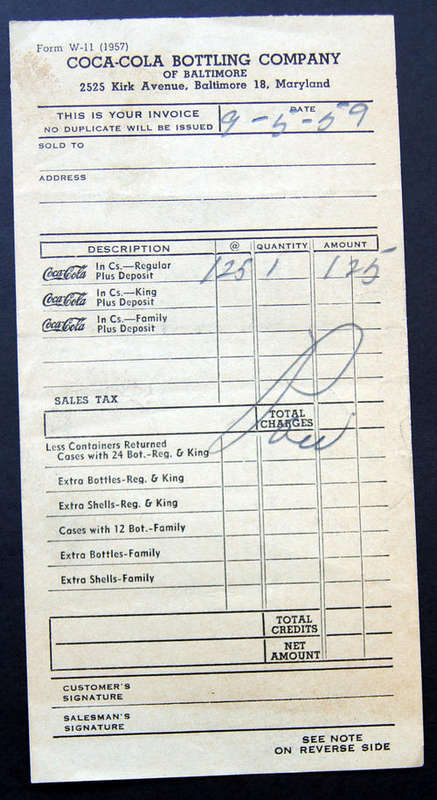 Form W-11 (1957)
COCA-COLA BOTTLING COMPANY
OF BALTIMORE
2525 Kirk Avenue, Baltimore 18, Maryland
THIS IS YOUR INVOICE
NO DUPLICATE WILL BE ISSUED
DATE
9-5-59
SOLD TO
ADDRESS
DESCRIPTION @ QUANTITY AMOUNT
Coca-Cola In Cs.—Regular Plus Deposit 125 1 1 25
Coca-Cola In Cs.—King Plus Deposit
Coca-Cola In Cs.—Family Plus Deposit
SALES TAX
TOTAL CHARGES
Less Containers Returned
Cases with 24 Bot.-Reg. & King
Extra Bottles-Reg. & King
Extra Shells-Reg. & King
Cases with 12 Bot.-Family
Extra Bottles-Family
Extra Shells-Family
TOTAL CREDITS
NET AMOUNT
CUSTOMER'S SIGNATURE
SALESMAN'S SIGNATURE
SEE NOTE
ON REVERSE SIDE